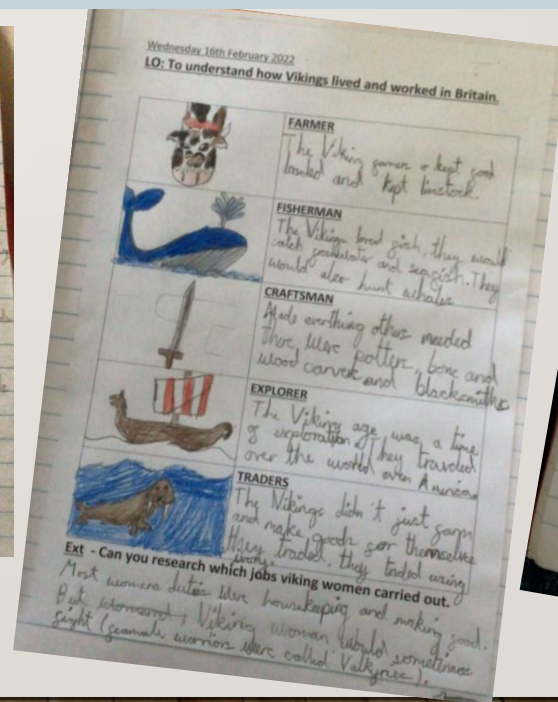 Wednesday 16th February 2022
LO: To understand how Vikings lived and worked in Britain.
FARMER
The Viking and kept livestock.
FISHERMAN
The Vikings loved fish, they would
catch and seafish. They
would also hunt whales
CRAFTSMAN
Made everthing others needed
There were potters, bone and
wood carvers and blacksmiths
EXPLORER
The Viking age was a time
of exploration They traveled
over the world even America
TRADERS
The Vikings didn't just farm
and make goods for themselves
they traded, they traded using
Ext - Can you research which jobs viking women carried out.
Most womens duties were housekeeping and making food.
But Viking woman would sometimes
fight ( warriors were called Valkyries).